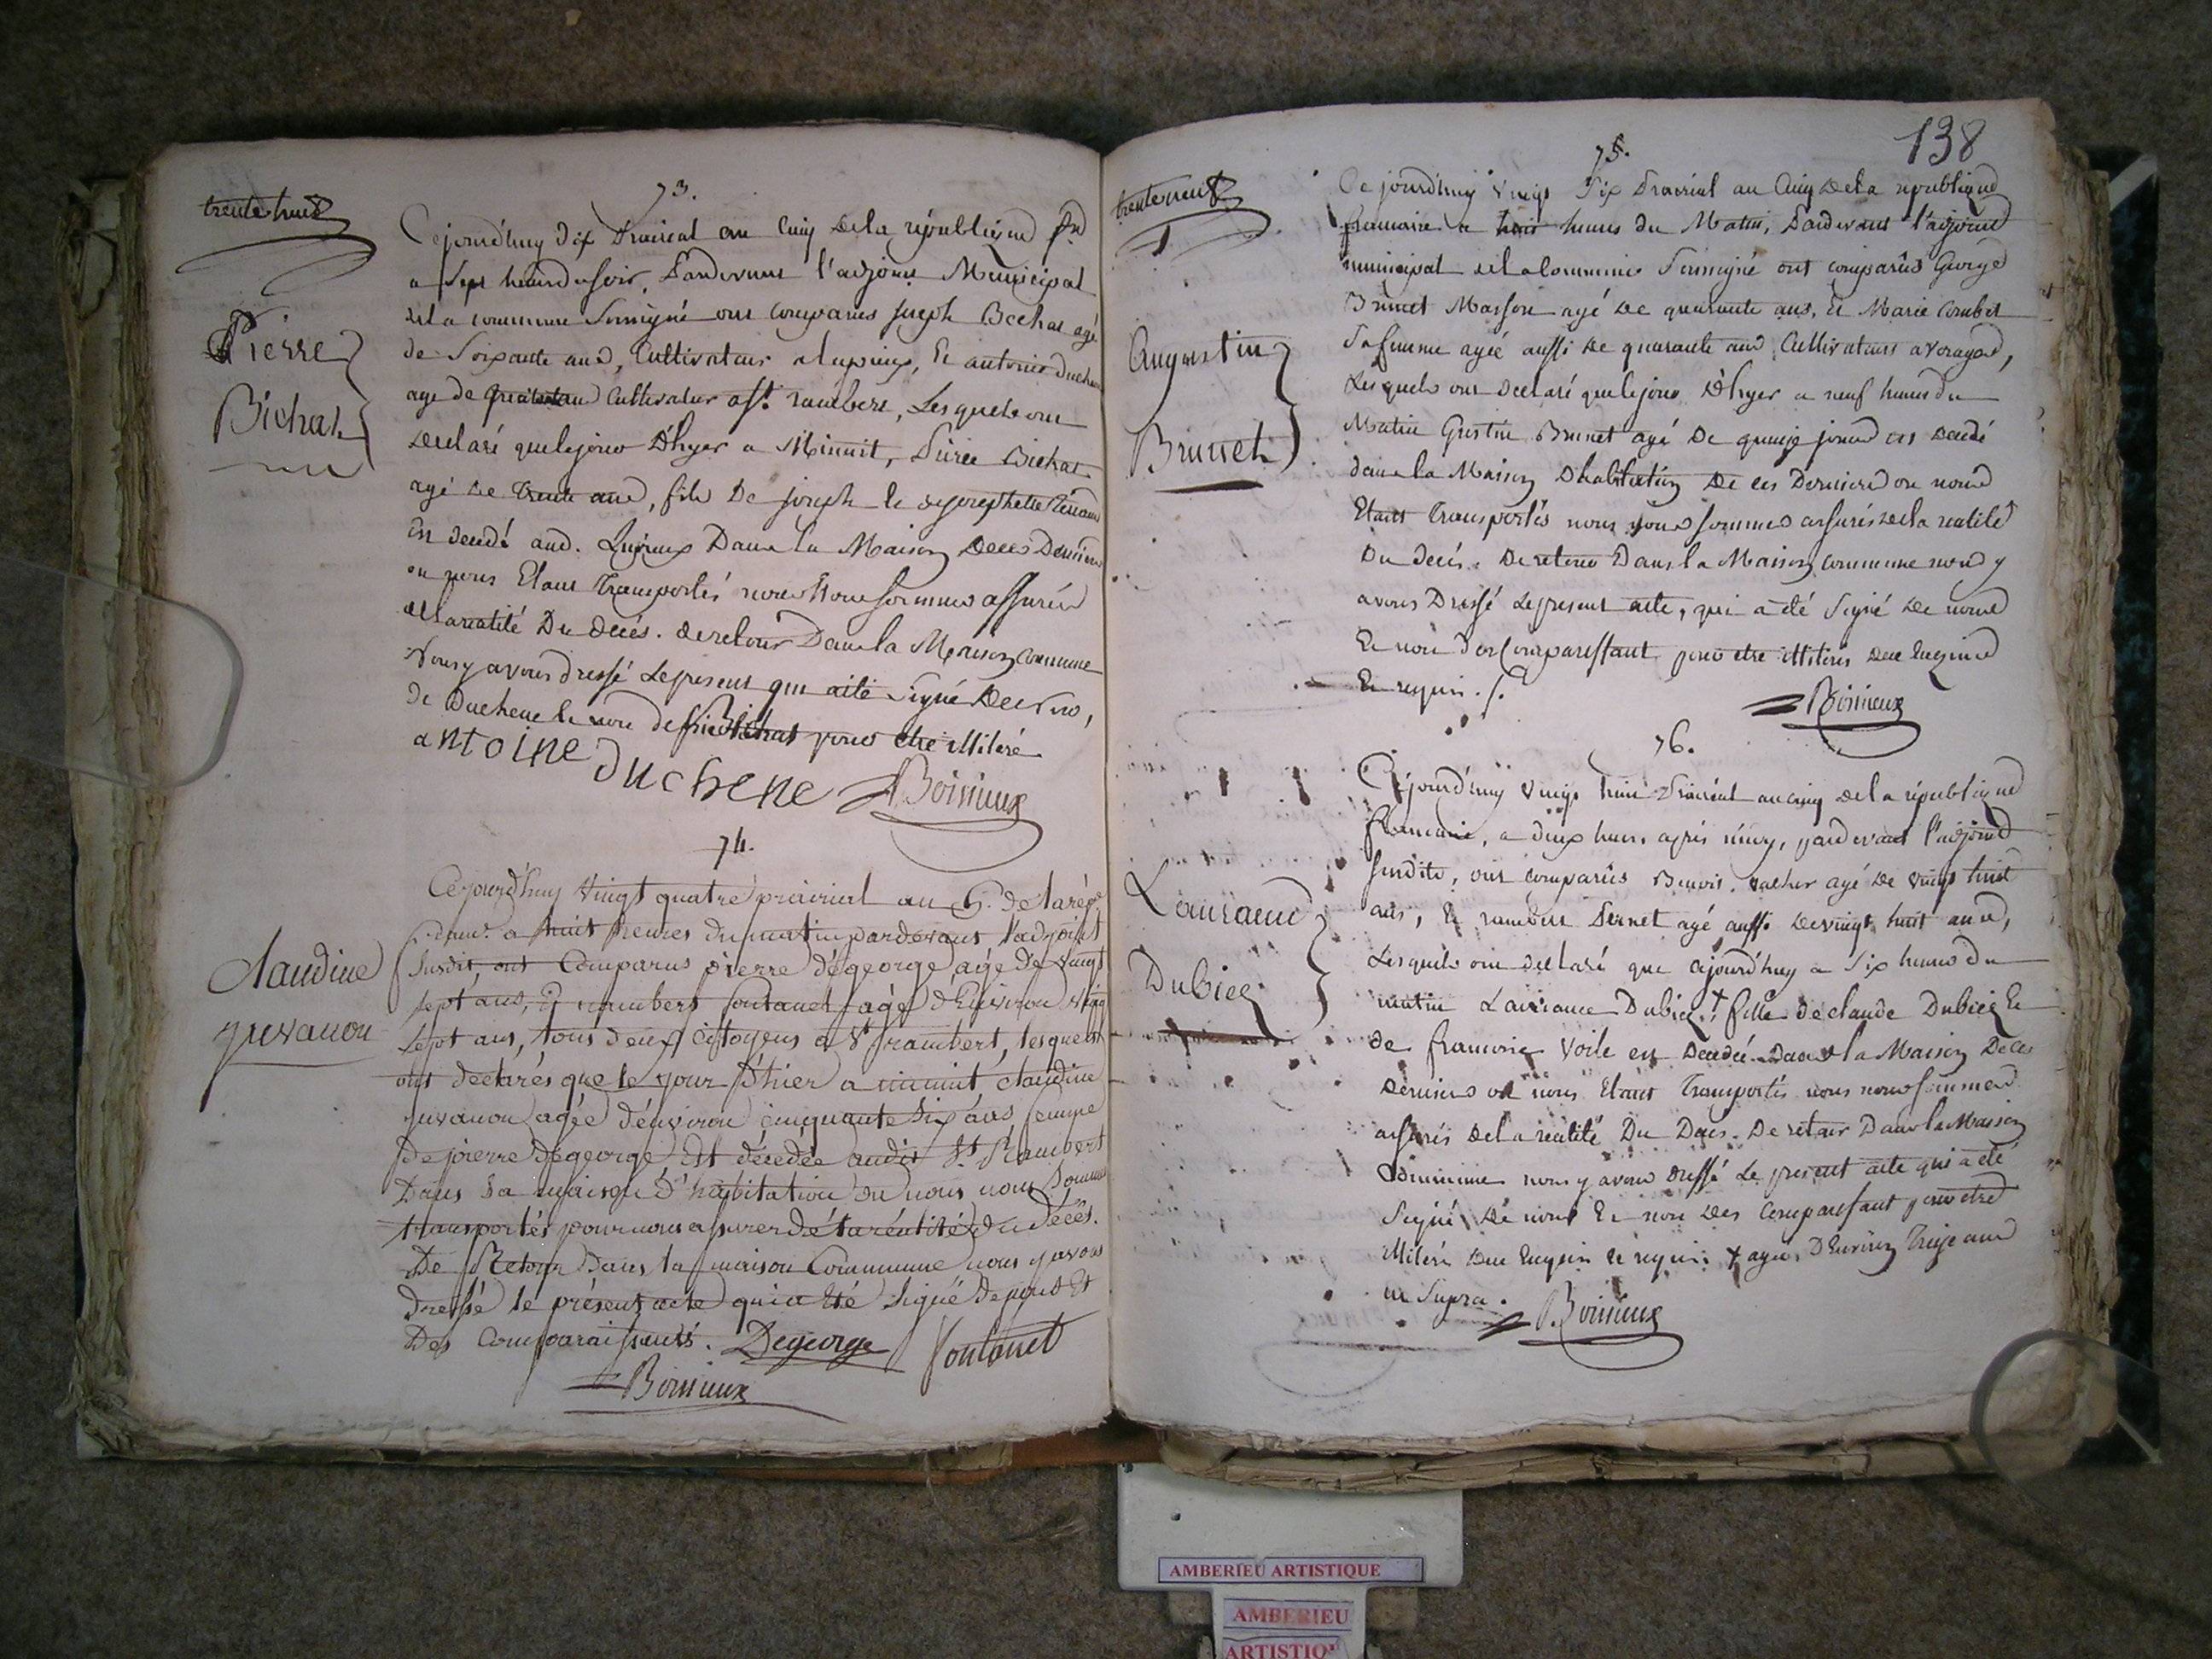 trente huit
73.
Pierre
Bichat
Cejourd'huy dix Prairial an Cinq de la république
a sept heures du soir, Pardevant l'adjoint Municipal
de la commune Soussigné ont comparus joseph Bechat agé
de Soixante ans, Cultivateur a lupieux, Et antoine duchene
agé de Cultivateur a St. rambert, Lesquels ont
declaré que le jour D'hyer a Minuit, Pierre Bichat
agé de trente ans, fils De joseph Et de josephette
est decedé aud. Lupieux Dans la Maison de ces Derniers
ou nous Etant Transportés nous Nous sommes assurés
de la realité Du decés. de retour Dans la Maison Commune
Nous y avons dressé le present qui a été Signé De Nous,
de Duchene Et non de Bichat pour etre illiteré
antoine duchene Boissieux
74.
Claudine
juvanon
Cejourd'huy Vingt quatre prairial an 5. de la rép.
a huit heures du matin pardevant l'adjoint
Susdit, ont Comparus pierre dégeorge agé de Vingt
sept ans, et rambert fontanet agé d'Environ vingt
sept ans, tous deux Citoyens a St rambert, lesquels
ont declarés que le jour d'hier a minuit claudine
juvanon agée d'environ cinquante six ans femme
de pierre dégeorge Est décedée audit St. Rambert
Dans sa maison d'habitation ou nous nous sommes
transportés pour nous assurer de la réalité du décès.
De Retour dans la maison Commune nous y avons
dressé le présent acte qui a Eté signé de nous Et
des Comparaissants. Degeorge fontanet
Boissieux
138
trente neuf
75.
Augustin
Brunet
Ce jourd'huy vingt six Prairial an Cinq de la republique
francaise a huit heures du Matin, Pardevant l'adjoint
municipal de la Commune Soussigné ont comparus George
Brunet Masson agé de quarante ans, Et Marie Combet
Sa femme agée aussi de quarante ans, Cultivateurs a vorages,
Lesquels ont declaré que le jour D'hyer a neuf heures du
Matin Gustin Brunet agé De quinze jours est decedé
dans la Maison D'habitation De ces Derniers ou nous
Etant Transportés nous nous sommes assurés de la realité
Du decés. De retour Dans la Maison Commune nous y
avons Dressé le present acte, qui a été signé de nous
Et non des Comparaissant pour etre illiterés de ce Enquis
Et requis.
Boissieux
76.
Laurance
Dubiez
Cejourd'huy vingt huit Prairial an cinq de la république
francaise, a deux heures après midy, pardevant l'adjoint
susdit, ont comparûs Benoit vacher agé De vingt huit
ans, Et rambert Pernet agé aussi de vingt huit ans,
Lesquels ont declaré que cejourd'huy a Six heures du
matin Laurance Dubiez + fille de claude Dubiez Et
de francoise Voile est Decedée Dans la Maison De ces
derniers ou nous Etant Transportés nous nous sommes
assurés de la realité Du Deces. De retour Dans la Maison
Commune nous y avons dressé le present acte qui a été
Signé De nous Et non des Comparaissant pour etre
illiterés de ce Enquis et requis + agée D'Environ Treize ans
ut Supra. Boissieux
AMBERIEU ARTISTIQUE
AMBERIEU
ARTISTIQ